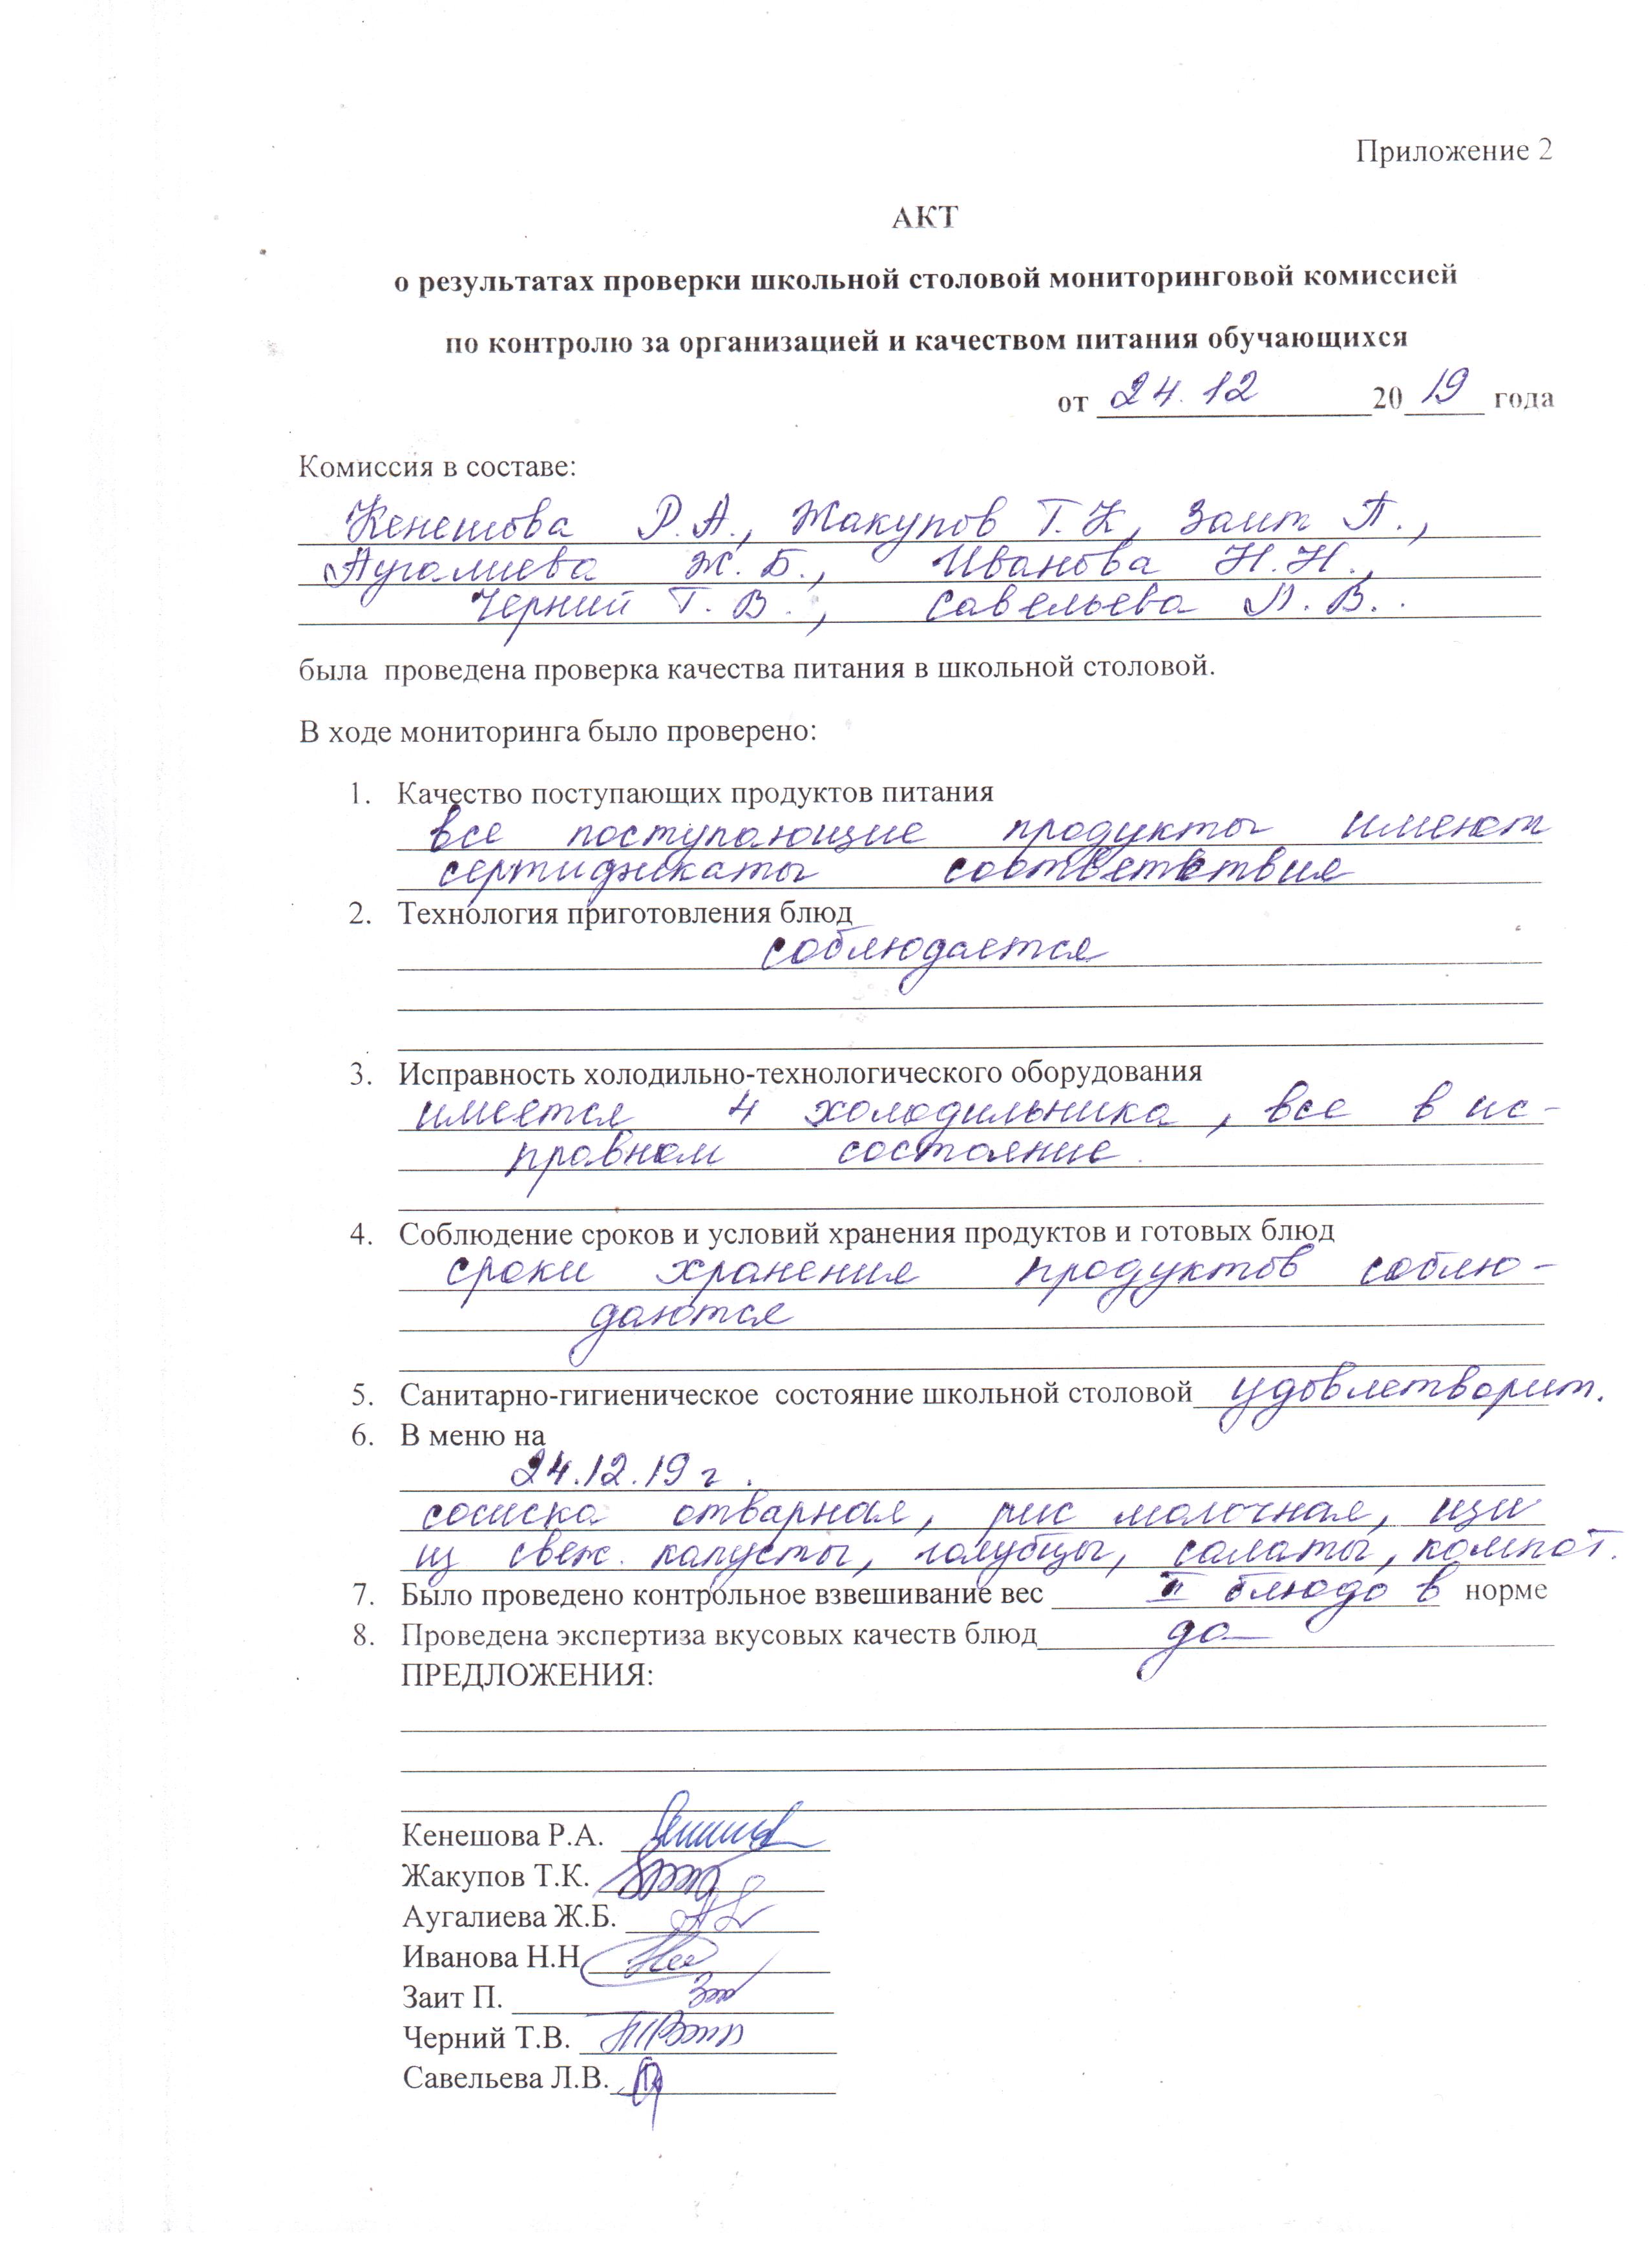 Приложение 2
АКТ
о результатах проверки школьной столовой мониторинговой комиссией
по контролю за организацией и качеством питания обучающихся
от 24.12 2019 года
Комиссия в составе:
Кенешова Р.А., Жакупов Т.К, Заит П.,
Аугалиева Ж.Б., Иванова Н.Н.,
Черний Т.В., Савельева Л.В..
была проведена проверка качества питания в школьной столовой.
В ходе мониторинга было проверено:
1. Качество поступающих продуктов питания
все поступающие продукты имеют
сертификаты соответствия
2. Технология приготовления блюд
соблюдается
3. Исправность холодильно-технологического оборудования
имеется 4 холодильника, все в ис-
правном состояние.
4. Соблюдение сроков и условий хранения продуктов и готовых блюд
сроки хранения продуктов соблю-
даются
5. Санитарно-гигиеническое состояние школьной столовой удовлетворит.
6. В меню на
24.12.19 г.
сосиска отварная, рис молочная, щи
из свеж. капусты, голубцы, салаты, компот.
7. Было проведено контрольное взвешивание вес II блюдо в норме
8. Проведена экспертиза вкусовых качеств блюд да
ПРЕДЛОЖЕНИЯ:
Кенешова Р.А.
Жакупов Т.К.
Аугалиева Ж.Б.
Иванова Н.Н
Заит П.
Черний Т.В.
Савельева Л.В.